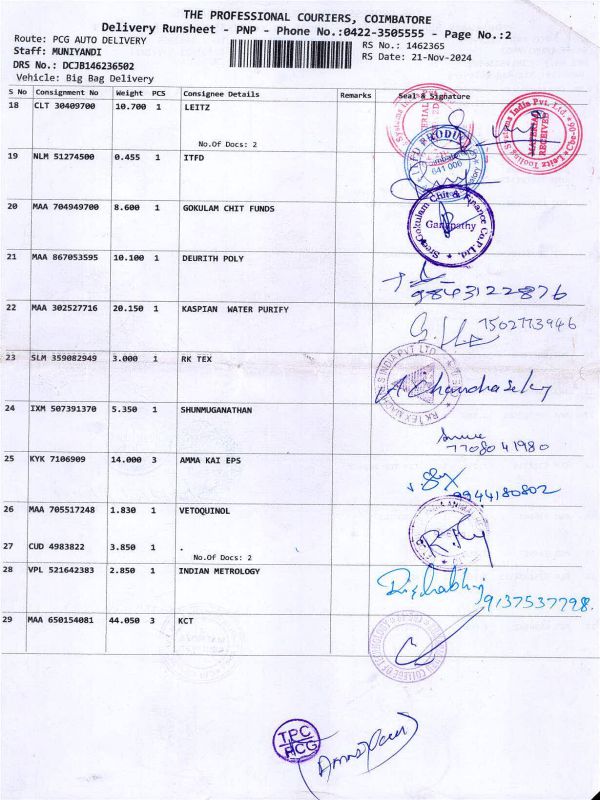 THE PROFESSIONAL COURIERS, COIMBATORE
Delivery Runsheet - PNP - Phone No.:0422-3505555 - Page No.:2
Route: PCG AUTO DELIVERY
RS No.: 1462365
Staff: MUNIYANDI
RS Date: 21-Nov-2024
DRS No.: DCJB146236502
Vehicle: Big Bag Delivery
S No Consignment No Weight PCS Consignee Details Remarks Seal & Signature
18 CLT 30409700 10.700 1 LEITZ
No.Of Docs: 2
Systems India Pvt. Ltd.
Leitz Tooling Systems India Pvt. Ltd.
MATERIAL RECEIVED
19 NLM 51274500 0.455 1 ITFD
641 006
20 MAA 704949700 8.600 1 GOKULAM CHIT FUNDS
Sree Gokulam Chit & Finance Co.P.Ltd.
Ganapathy
21 MAA 867053595 10.100 1 DEURITH POLY
9843122876
22 MAA 302527716 20.150 1 KASPIAN WATER PURIFY
7502773946
23 SLM 359082949 3.000 1 RK TEX
A. Chandrasekar
24 IXM 507391370 5.350 1 SHUNMUGANATHAN
7708041980
25 KYK 7106909 14.000 3 AMMA KAI EPS
9944180802
26 MAA 705517248 1.830 1 VETOQUINOL
27 CUD 4983822 3.850 1 .
No.Of Docs: 2
28 VPL 521642383 2.850 1 INDIAN METROLOGY
9137537798.
29 MAA 650154081 44.050 3 KCT
TPC
PCG